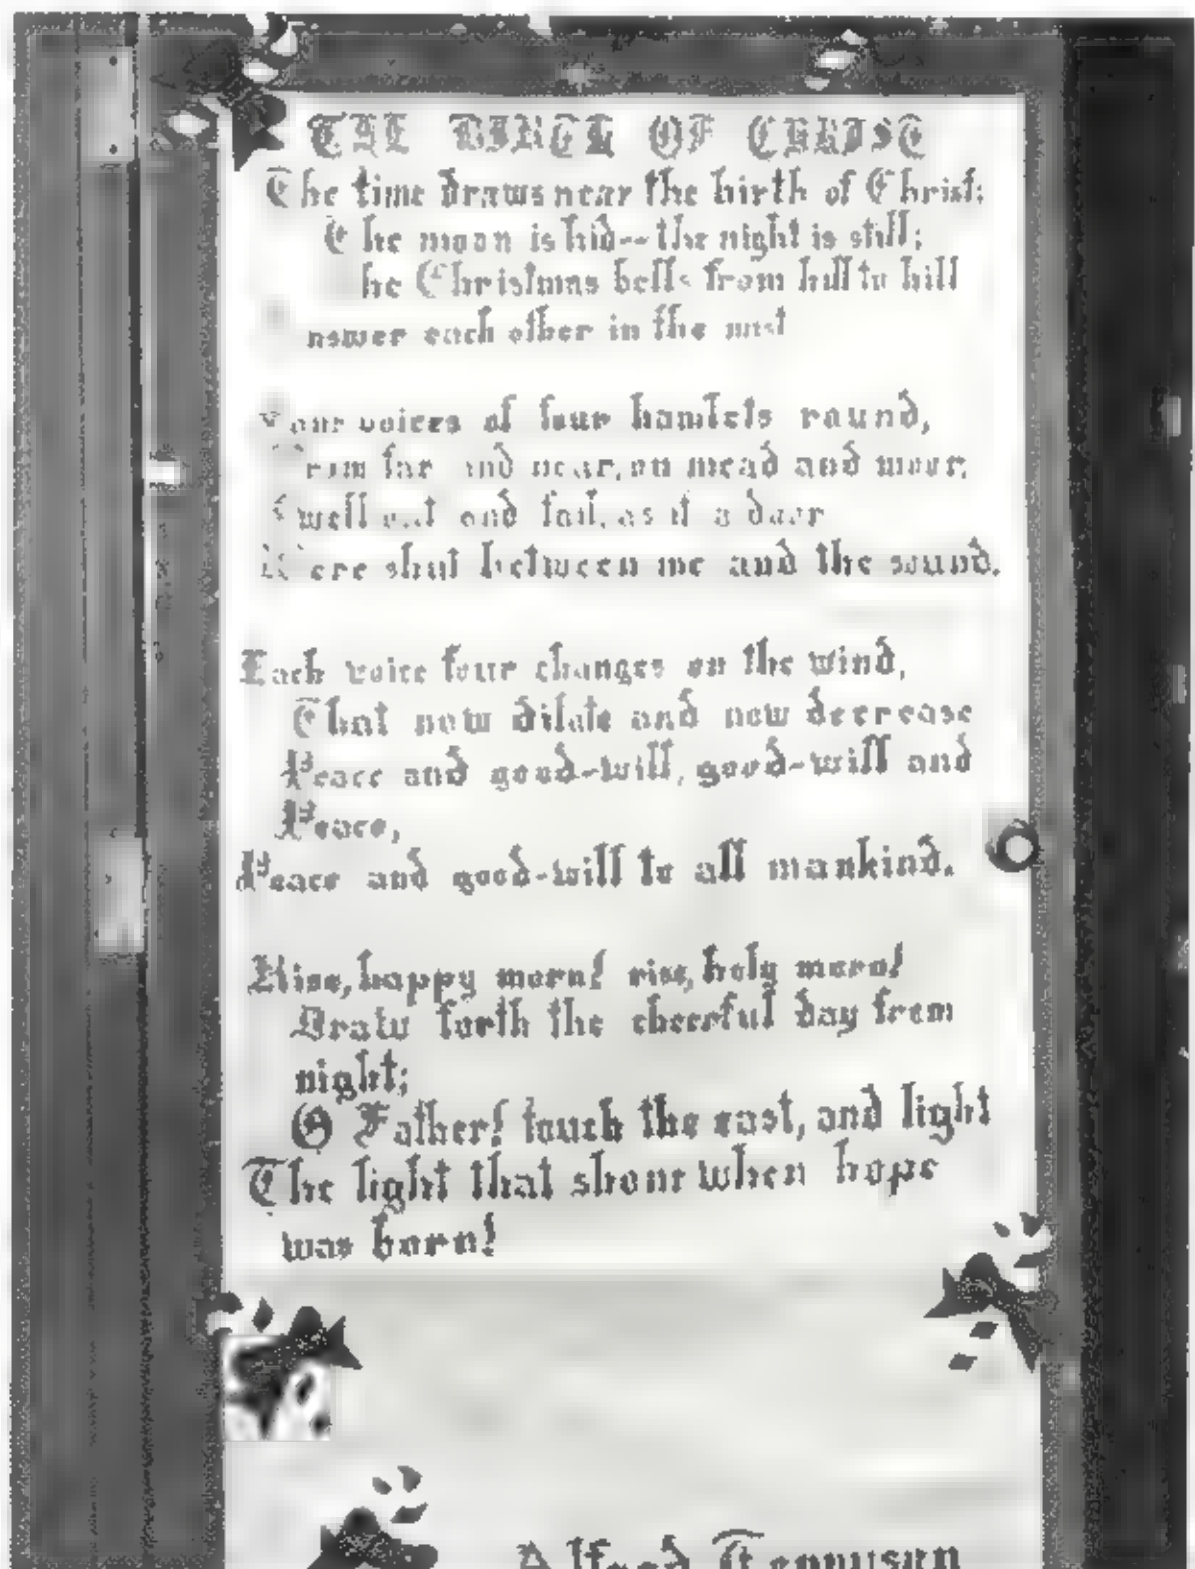 THE BIRTH OF CHRIST
The time draws near the birth of Christ;
The moon is hid--the night is still;
he Christmas bells from hill to hill
nswer each other in the mist
our voices of four hamlets round,
rom far and near, on mead and moor,
Swell out and fail, as if a door
Were shut between me and the sound.
Each voice four changes on the wind,
That now dilate and now decrease
Peace and good-will, good-will and
Peace,
Peace and good-will to all mankind.
Rise, happy morn! rise, holy morn!
Draw forth the cheerful day from
night;
O Father! touch the east, and light
The light that shone when hope
was born!
Alfred Tennyson